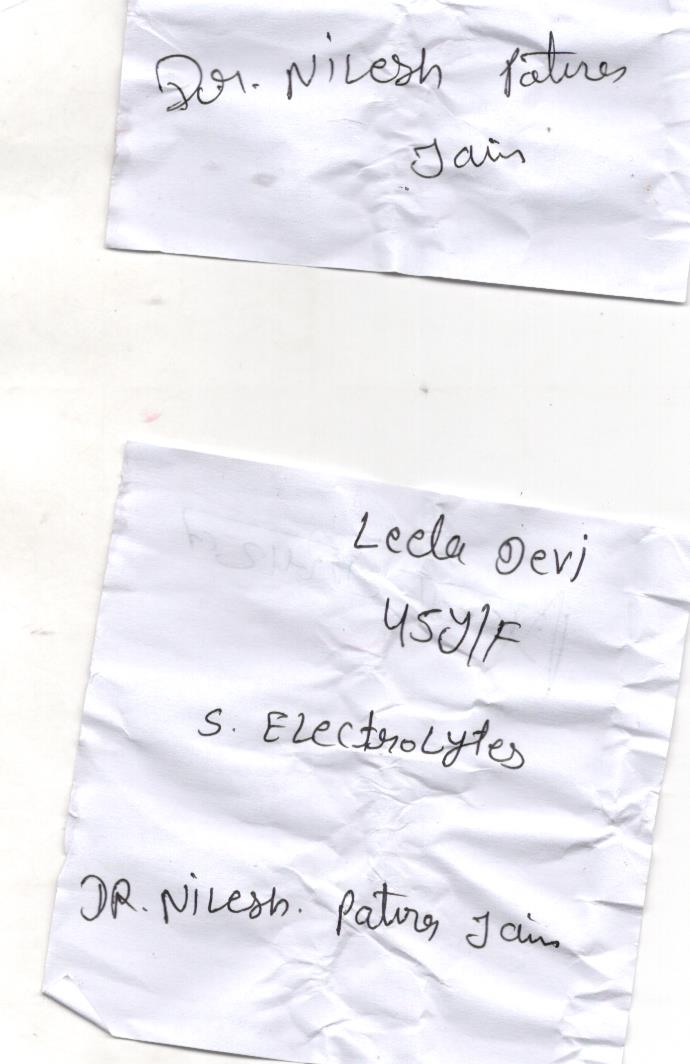 Dr. Nilesh Patures
Jain
Leela Devi
45Y/F
S. Electrolytes
DR. Nilesh. Patures Jain